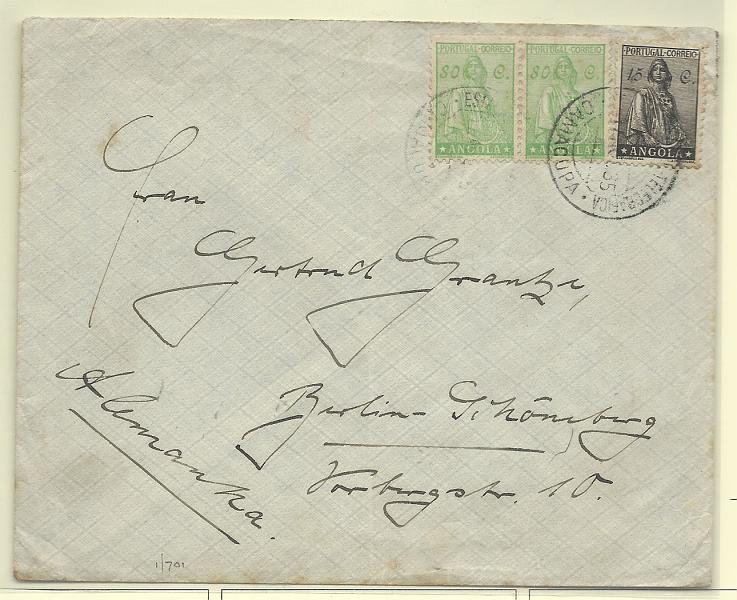 PORTUGAL-CORREIO PORTUGAL-CORREIO PORTUGAL-CORREIO
80 C. 80 C. 15 C.
ANGOLA ANGOLA ANGOLA
CAMACUPA
35
Frau
Gertrud Grantze,
Alemanha.
Berlin-Schöneberg
Vorbergstr. 10.
1/701